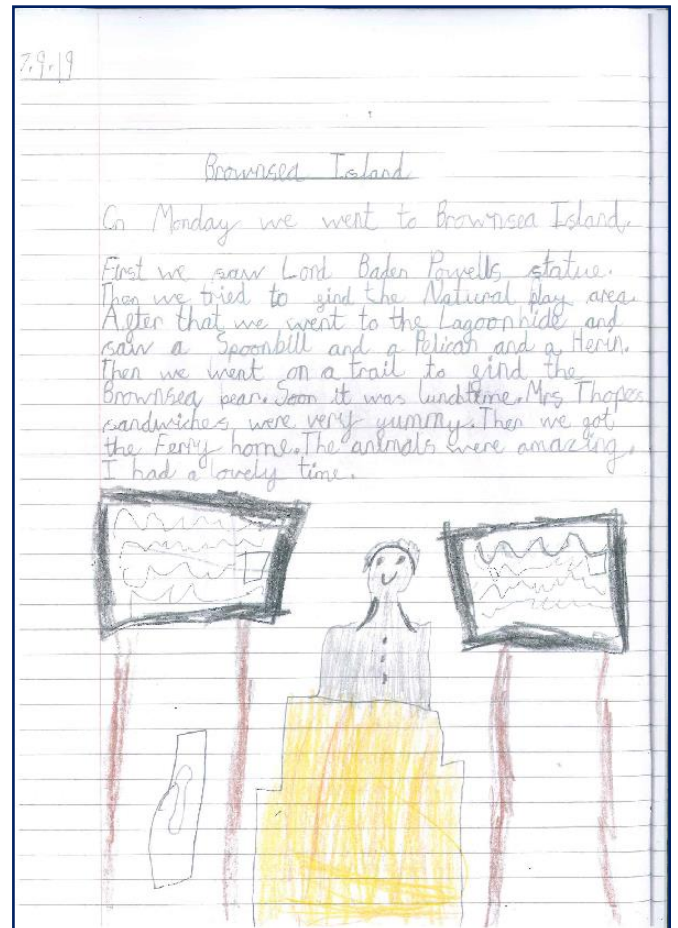 7.9.19
Brownsea Island
On Monday we went to Brownsea Island.
First we saw Lord Baden Powells statue.
Then we tried to find the Natural play area.
After that we went to the Lagoonhide and
saw a Spoonbill and a Pelican and a Herin.
Then we went on a trail to find the
Brownsea bear. Soon it was lunchtime. Mrs Thopes
sandwiches were very yummy. Then we got
the Ferry home. The animals were amazing.
I had a lovely time.